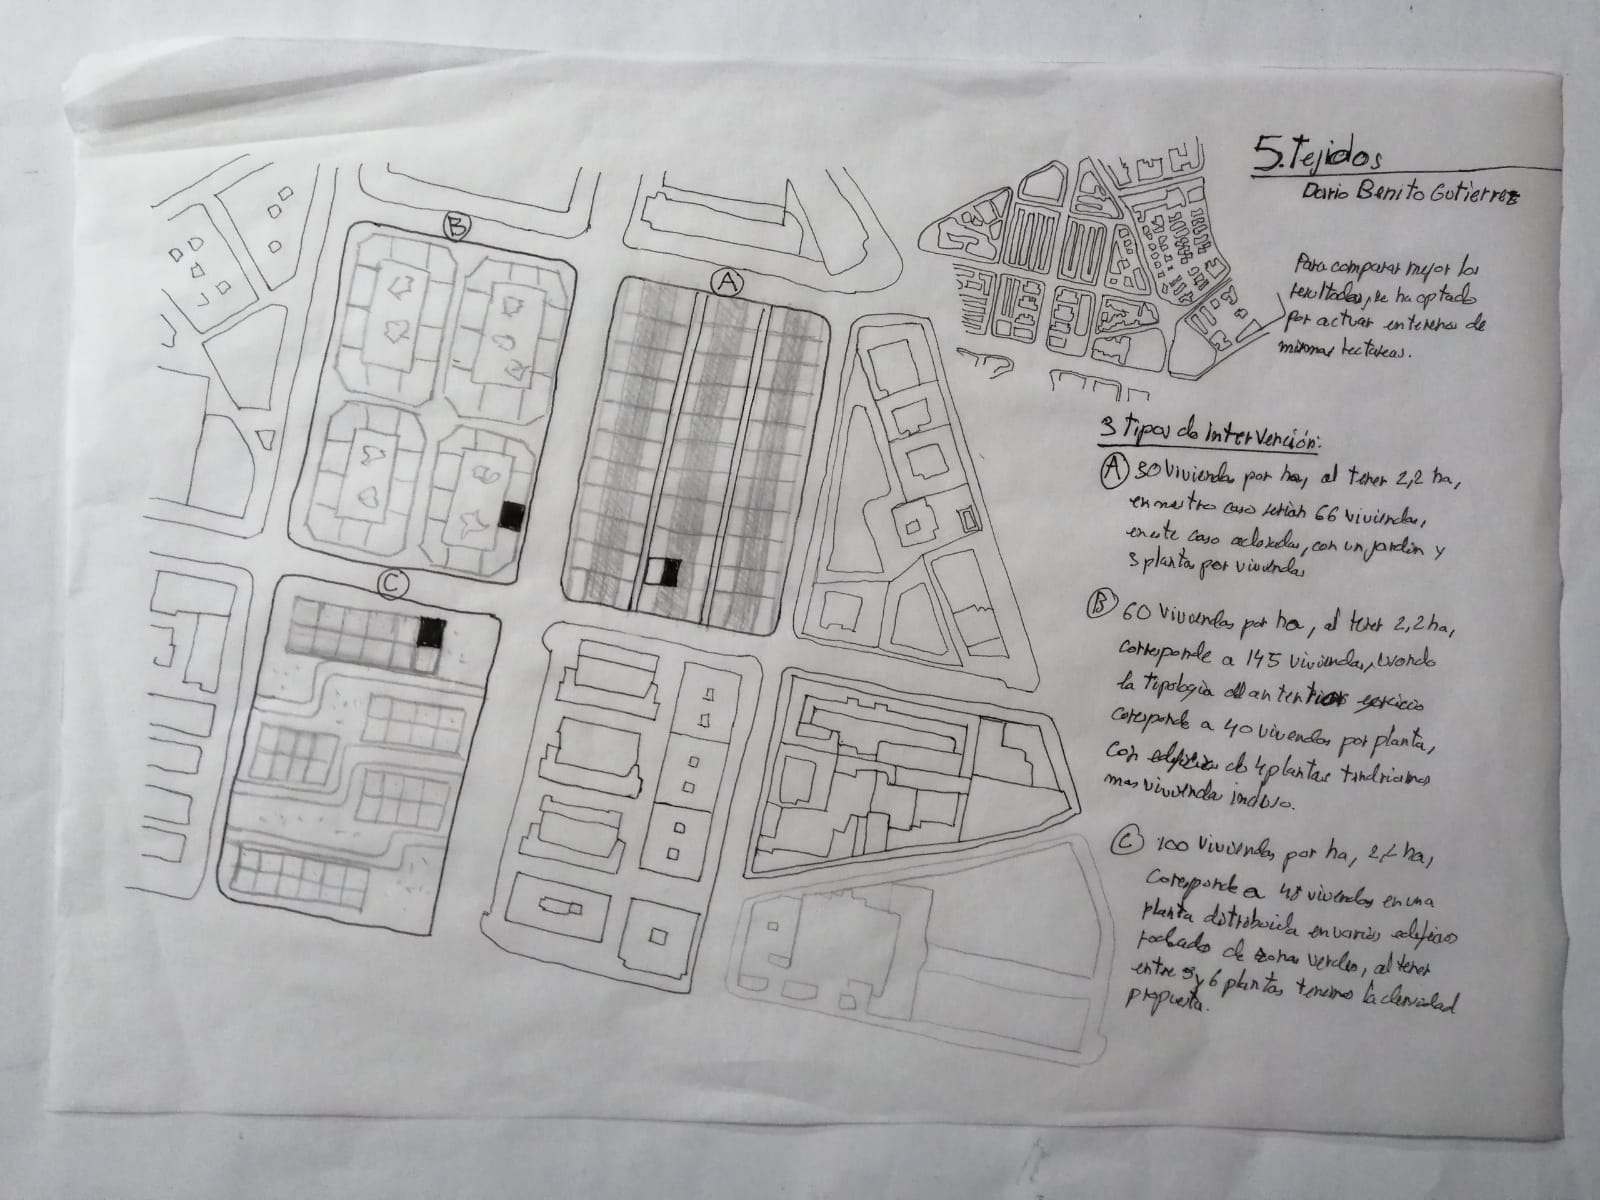 5. Tejidos
Dario Benito Gutierrez
Para comparar mejor los
resultados, se ha optado
por actuar en terenos de
mismas hectareas.
3 Tipos de intervención:
A 30 viviendas por ha, al tener 2,2 ha,
en nuestro caso serian 66 viviendas,
en este caso adosadas, con un jardin y
3 plantas por viviendas
B 60 viviendas por ha, al tener 2,2 ha,
corresponde a 145 viviendas, usando
la tipologia del anterior ejercicio
corresponde a 40 viviendas por planta,
con edificios de 4 plantas tendriamos
mas vivienda incluso.
C 100 viviendas por ha, 2,2 ha,
corresponde a 48 viviendas en una
planta distribuida en varios edificios
rodeados de zonas verdes, al tener
entre 5 y 6 plantas tenemos la densidad
propuesta.
B
A
C